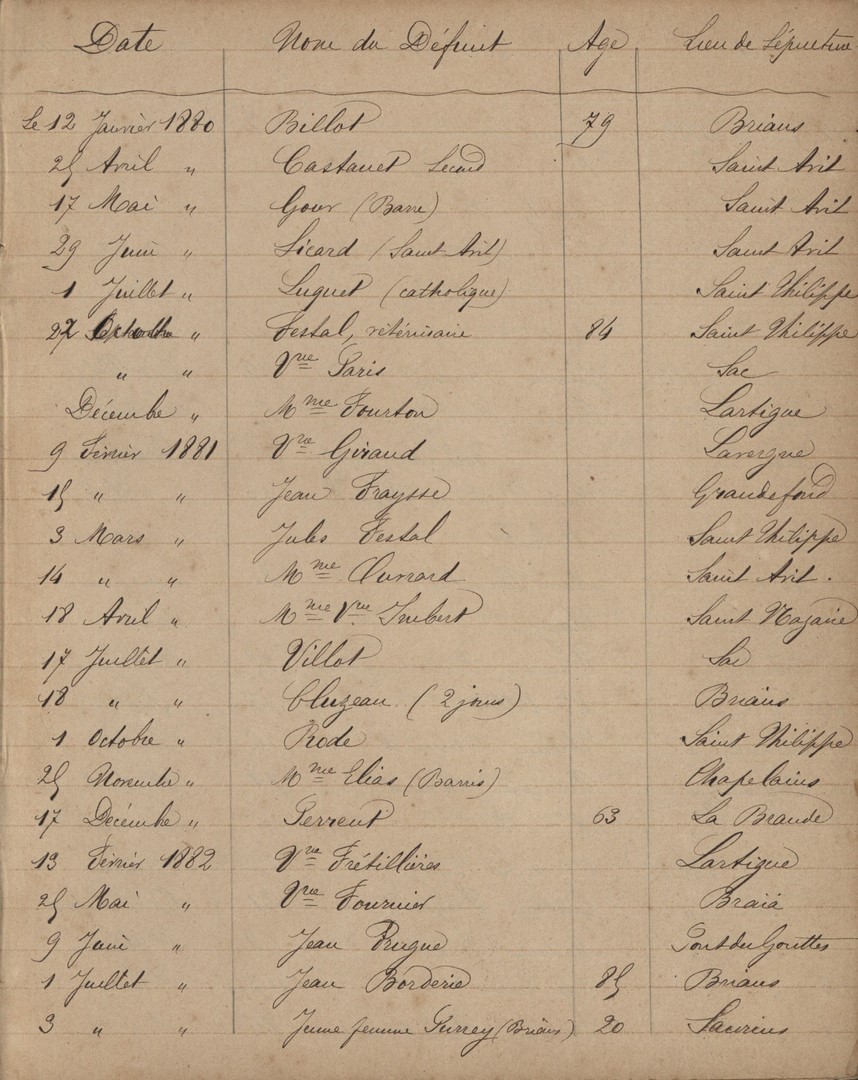 Date Nom du Défunt Age Lieu de Sépulture
Le 12 Janvier 1880 Billot 79 Briaus
25 Avril " Castanet Second Saint Avit
17 Mai " Gour (Barre) Saint Avit
29 Juin " Sicard (Saint Avit) Saint Avit
1 Juillet " Luguet (catholique) Saint Philippe
27 " Testal, vétérinaire 84 Saint Philippe
" " Vve Paris Sac
Décembre " Mme Fourton Lartigue
9 Février 1881 Vve Giraud Lavergne
15 " " Jean Fraysse Grandefond
3 Mars " Jules Testal Saint Philippe
14 " " Mme Saint Avit.
18 Avril " Mme Vve Imbert Saint Nazaire
17 Juillet " Villot Sac
18 " " Cluzeau (2 jours) Briaus
1 Octobre " Rode Saint Philippe
25 Novembre " Mme Elias (Barris) Chapelains
17 Décembre " Perrent 63 La Brande
13 Février 1882 Vve Frétillères Lartigue
25 Mai " Vve Fournier
9 Juin " Jean Prugue Pont du Gouttes
1 Juillet " Jean Borderie 85 Briaus
3 " " Jeune femme (Briaus) 20